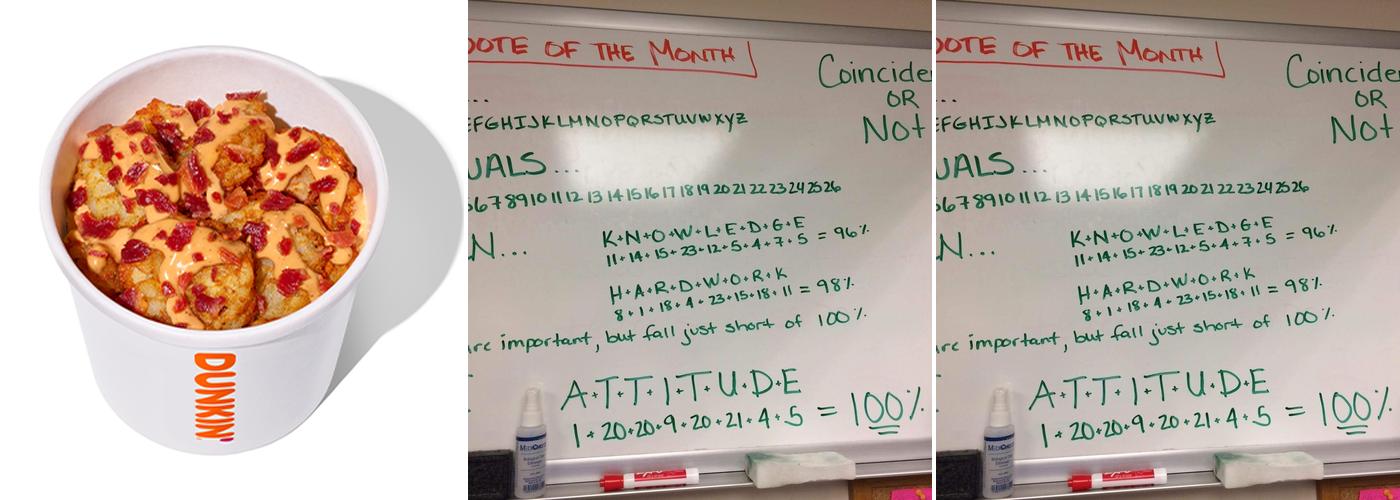 DUNKIN'
OTE OF THE MONTH
Coincide
OR
Not
...
EFGHIJKLMNOPQRSTUVWXYZ
UALS...
6 7 8 9 10 11 12 13 14 15 16 17 18 19 20 21 22 23 24 25 26
N...
K+N+O+W+L+E+D+G+E
11+14+15+23+12+5+4+7+5 = 96%
H+A+R+D+W+O+R+K
8+1+18+4+23+15+18+11 = 98%
are important, but fall just short of 100%
A+T+T+I+T+U+D+E
1+20+20+9+20+21+4+5 = 100%
OTE OF THE MONTH
Coincide
OR
Not
...
EFGHIJKLMNOPQRSTUVWXYZ
UALS...
6 7 8 9 10 11 12 13 14 15 16 17 18 19 20 21 22 23 24 25 26
N...
K+N+O+W+L+E+D+G+E
11+14+15+23+12+5+4+7+5 = 96%
H+A+R+D+W+O+R+K
8+1+18+4+23+15+18+11 = 98%
are important, but fall just short of 100%
A+T+T+I+T+U+D+E
1+20+20+9+20+21+4+5 = 100%